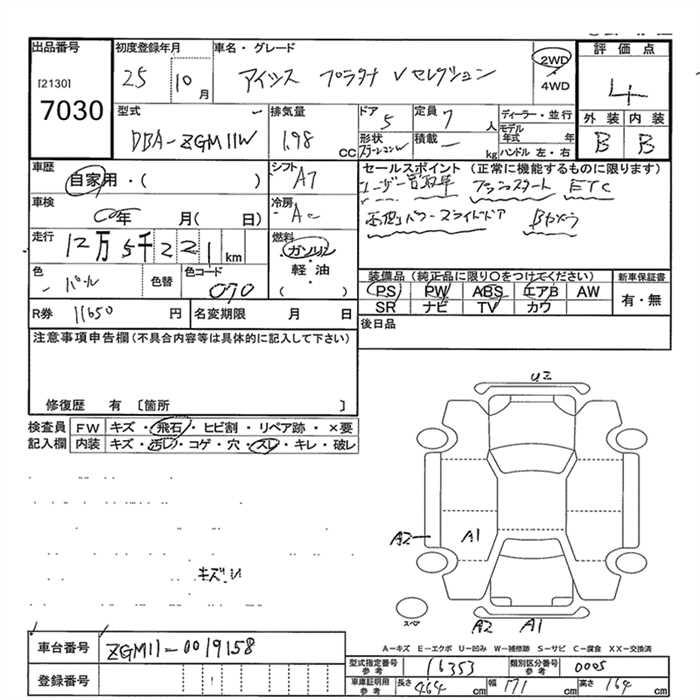 出品番号 初度登録年月 車名・グレード 評価点
[2130] 25 10月 アイシス プラタナ Vセレクション 2WD 4
7030 4WD 外装 内装
型式 排気量 ドア 定員 ディーラー・並行 B B
DBA-ZGM11W 1.98 CC 5 7 人 モデル年式 年
形状 ステーションW 積載 - kg ハンドル 左・右
車歴 シフト セールスポイント (正常に機能するものに限ります)
自家用・( ) AT ユーザー買取車 プッシュスタート ETC
車検 冷房 両側パワースライドドア Bカメラ
年 月( 日) AC
走行 燃料
12万5千221km ガソリン
色 色替 色コード 軽・油 装備品(純正品に限り○をつけてください) 新車保証書
パール 070 ( ) PS PW ABS エアB AW 有・無
R券 11650 円 名変期限 月 日 SR ナビ TV カワ
注意事項申告欄(不具合内容等は具体的に記入して下さい) 後日品
修復歴 有 [箇所 ]
検査員 FW キズ・飛石・ヒビ割・リペア跡・×要
記入欄 内装 キズ・汚レ・コゲ・穴・スレ・キレ・破レ
U2
A2 A1
キズ・ハ
スペア
A2 A1
A-キズ E-エクボ U-凹み W-補修跡 S-サビ C-腐食 XX-交換済
車台番号 ZGM11-0019158
型式指定番号 参考 16353 類別区分番号 参考 0005
登録番号
車庫証明用 参考 長さ 464 cm 幅 171 cm 高さ 164 cm